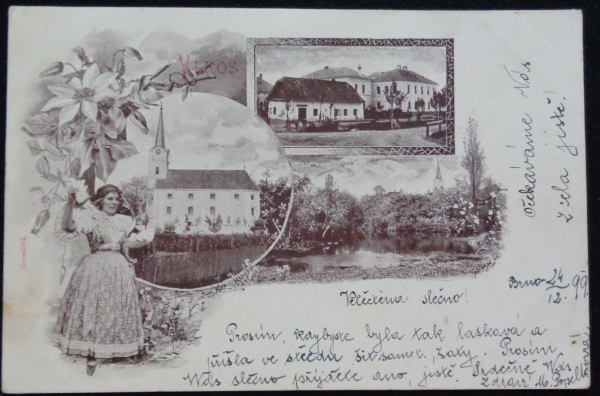 VLKOŠ
Očekáváme Vás
zcela jistě!
Brno 24/12. 99
Velectěná slečno!
Prosím, kdybyste byla tak laskavá a
přišla ve středu
Prosím
Vás slečno přijdete ano, jistě. Srdečně Vás
zdraví M. Popelková